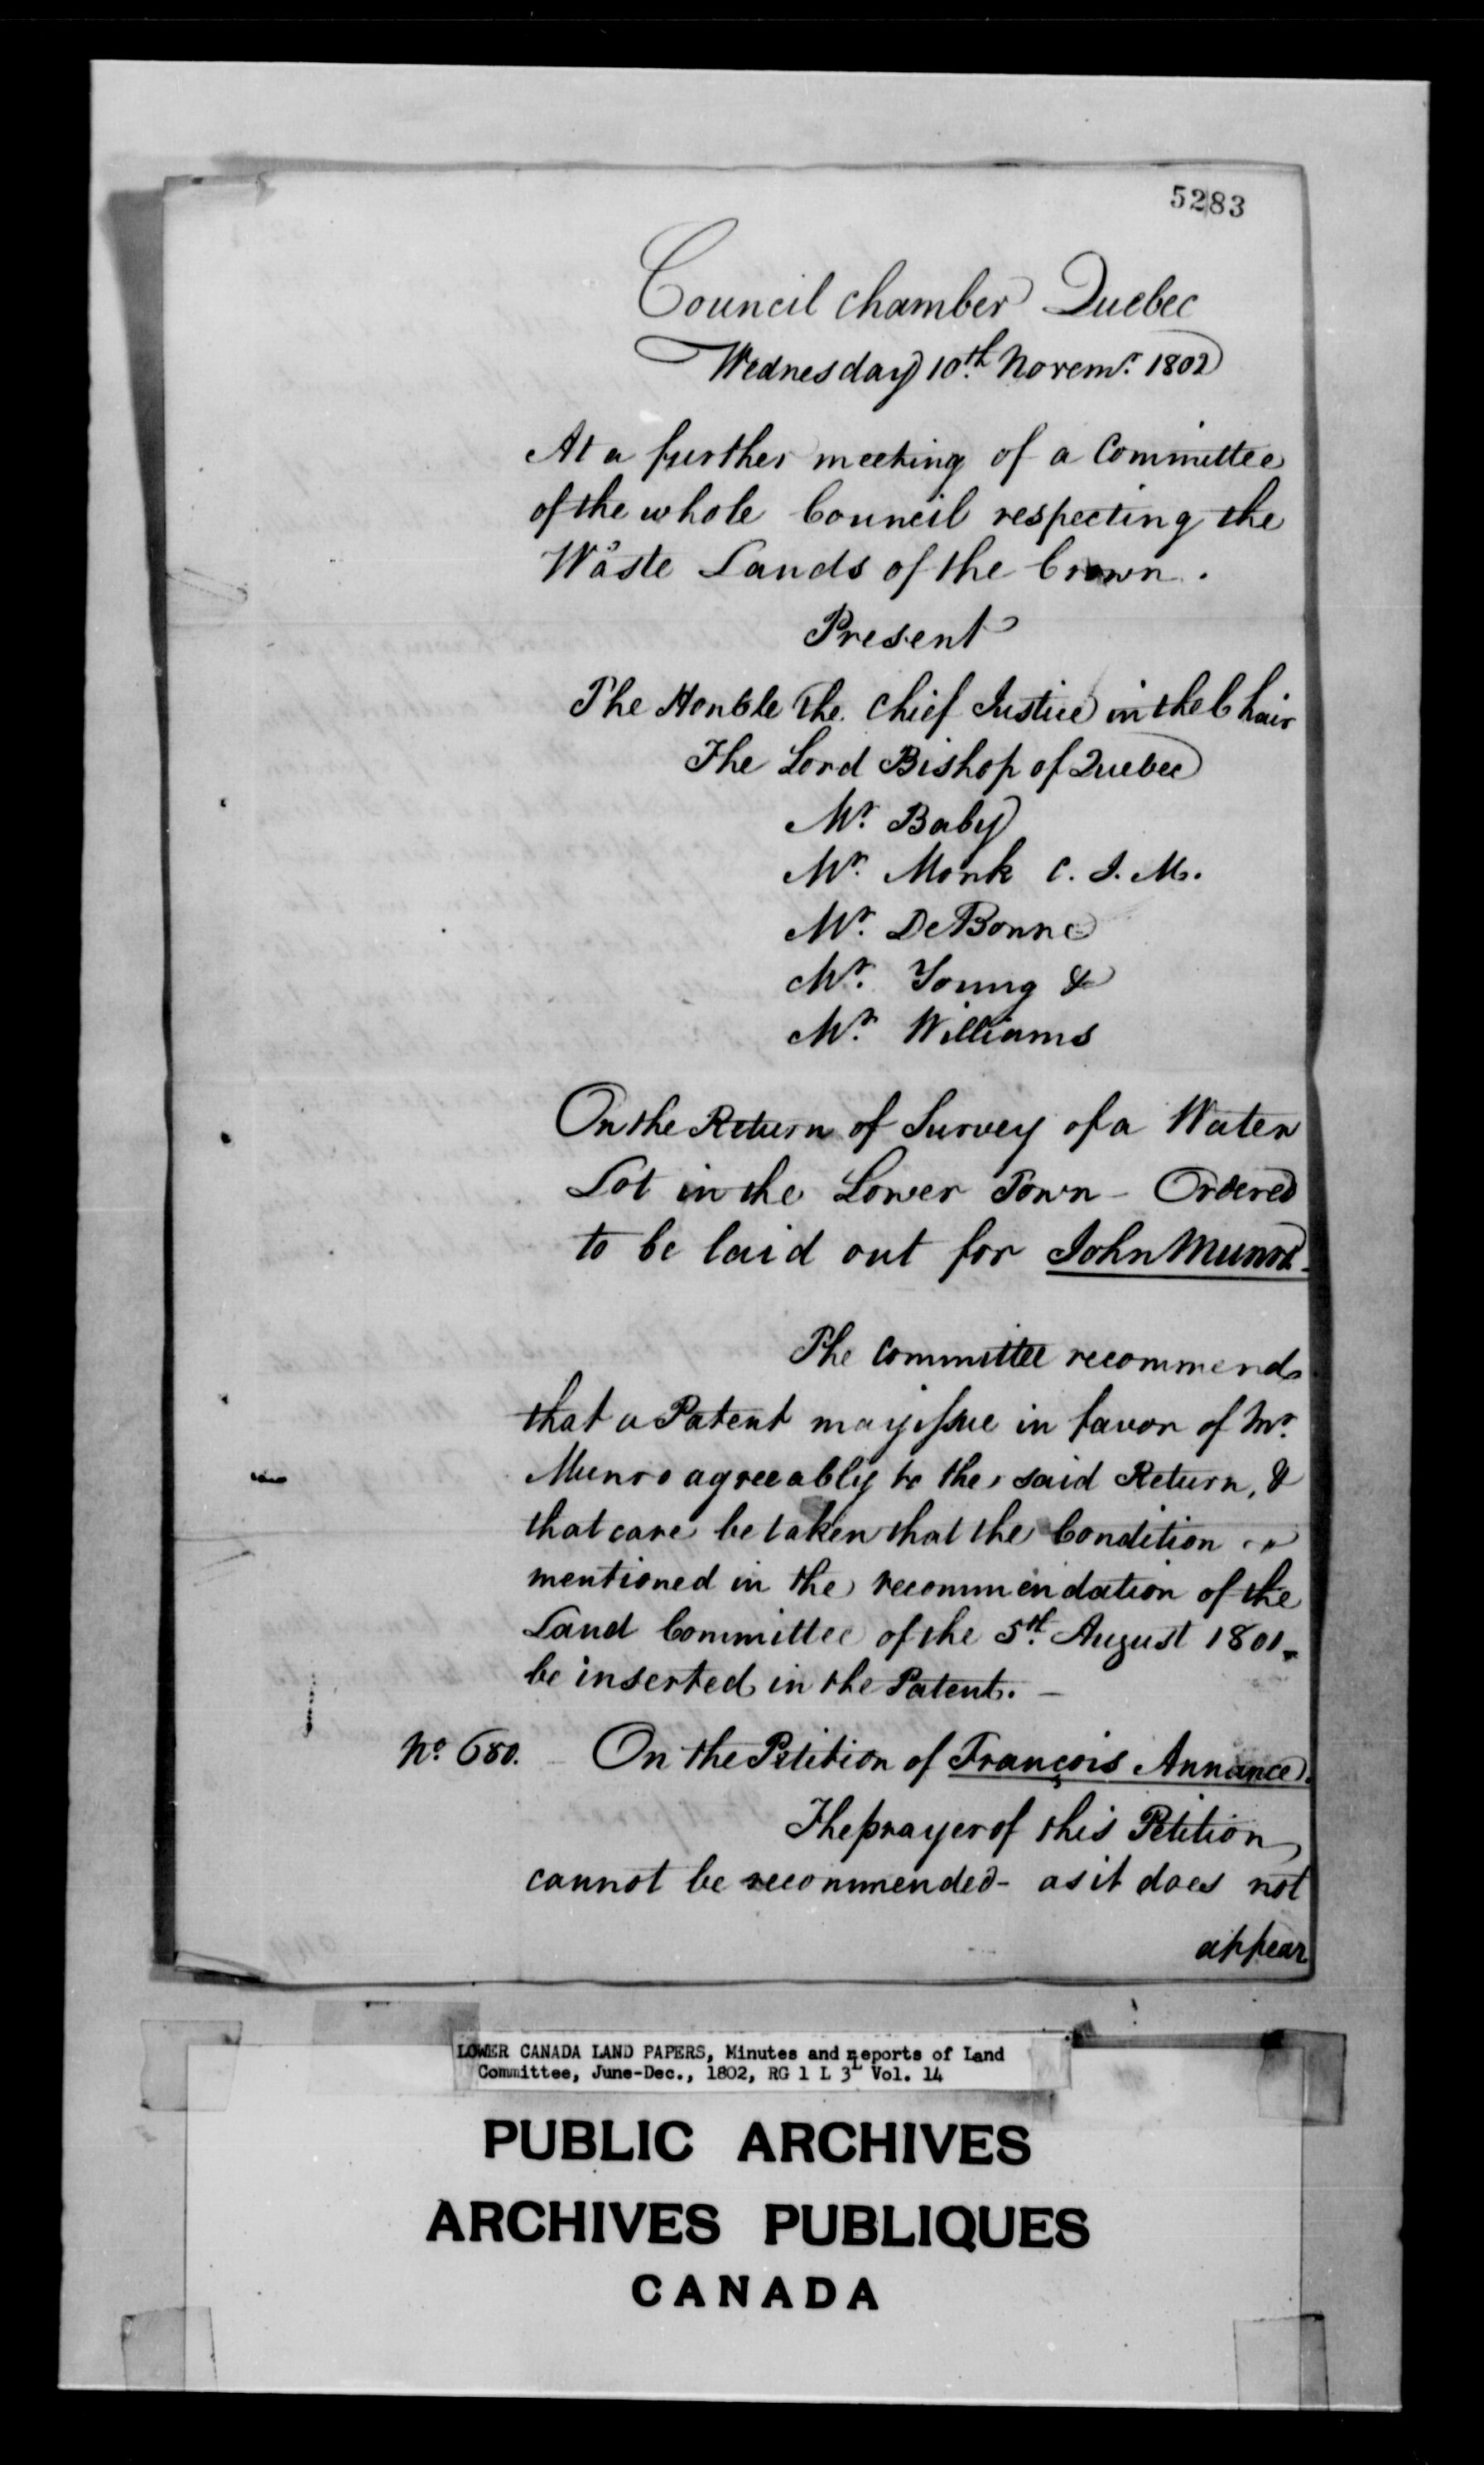 5283
Council Chamber Quebec
Wednesday 10th Novemr. 1802
At a further meeting of a Committee
of the whole Council respecting the
Waste Lands of the Crown.
Present
The Honble The Chief Justice in the Chair
The Lord Bishop of Quebec
Mr. Baby
Mr. Monk C. J. M.
Mr. De Bonne
Mr. Young &
Mr. Williams
On the Return of Survey of a Water
Lot in the Lower Town - Ordered
to be laid out for John Munro.
The Committee recommends
that a Patent may issue in favor of Mr.
Munro agreeably to the said Return, &
that care be taken that the Condition
mentioned in the recommendation of the
Land Committee of the 5th. August 1801
be inserted in the Patent. -
No. 680. - On the Petition of François Annance.
The prayer of this Petition
cannot be recommended - as it does not
appear
LOWER CANADA LAND PAPERS, Minutes and Reports of Land
Committee, June-Dec., 1802, RG 1 L 3L Vol. 14
PUBLIC ARCHIVES
ARCHIVES PUBLIQUES
CANADA